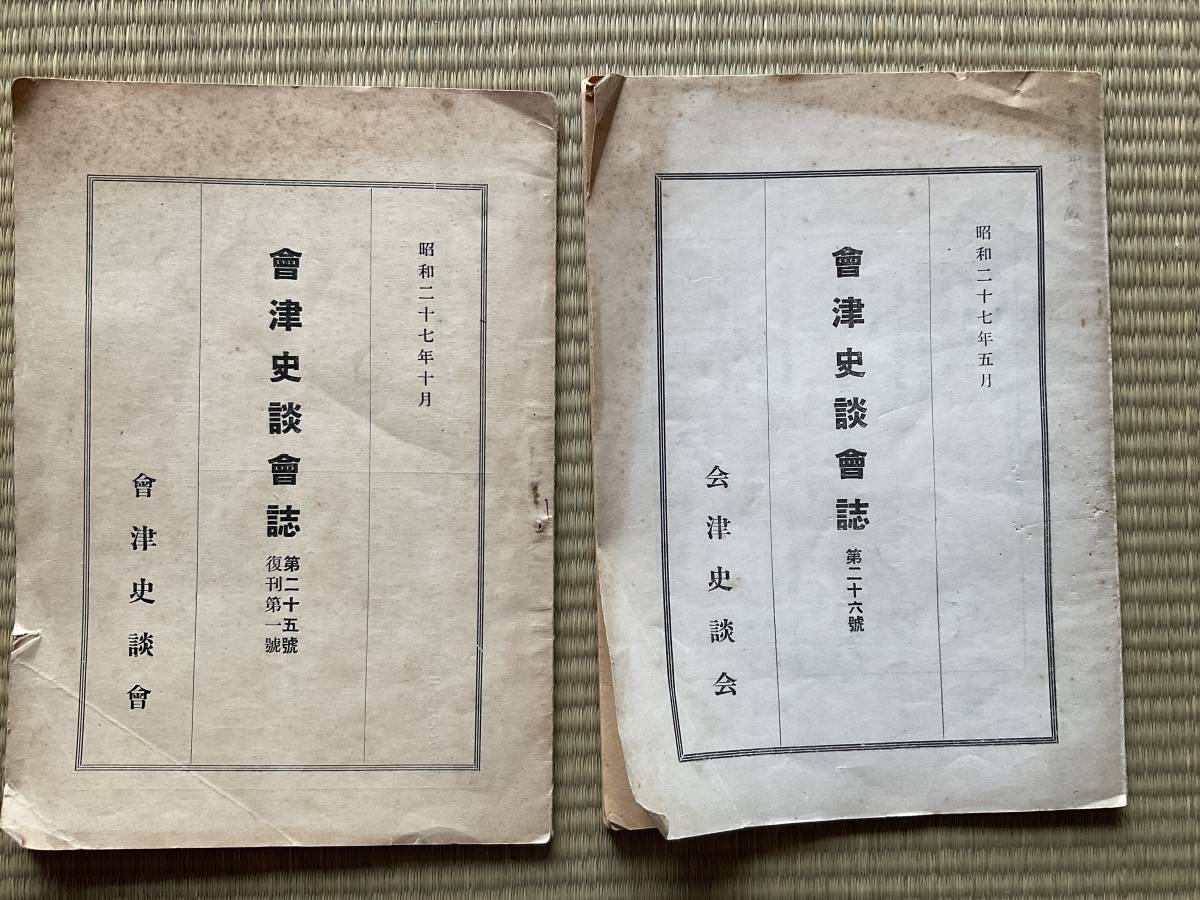 昭和二十七年十月
會津史談會誌 第二十五號
復刊第一號
會津史談會
昭和二十七年五月
會津史談會誌 第二十六號
会津史談会